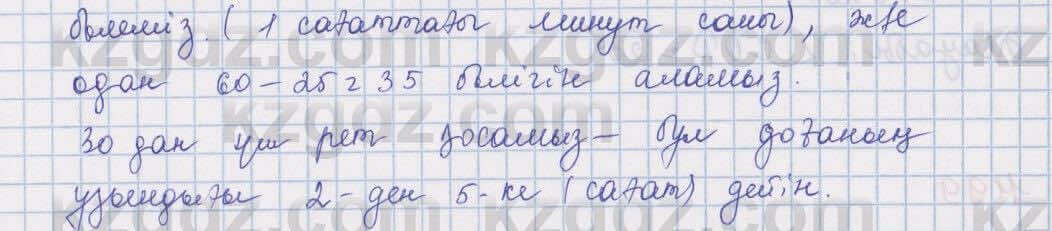 бөлеміз. (1 сағаттағы минут саны), және
одан 60 - 25 = 35 бөлігін аламыз.
30 дан үш рет қосамыз - бұл доғаның
ұзындығы 2-ден 5-ке (сағат) дейін.